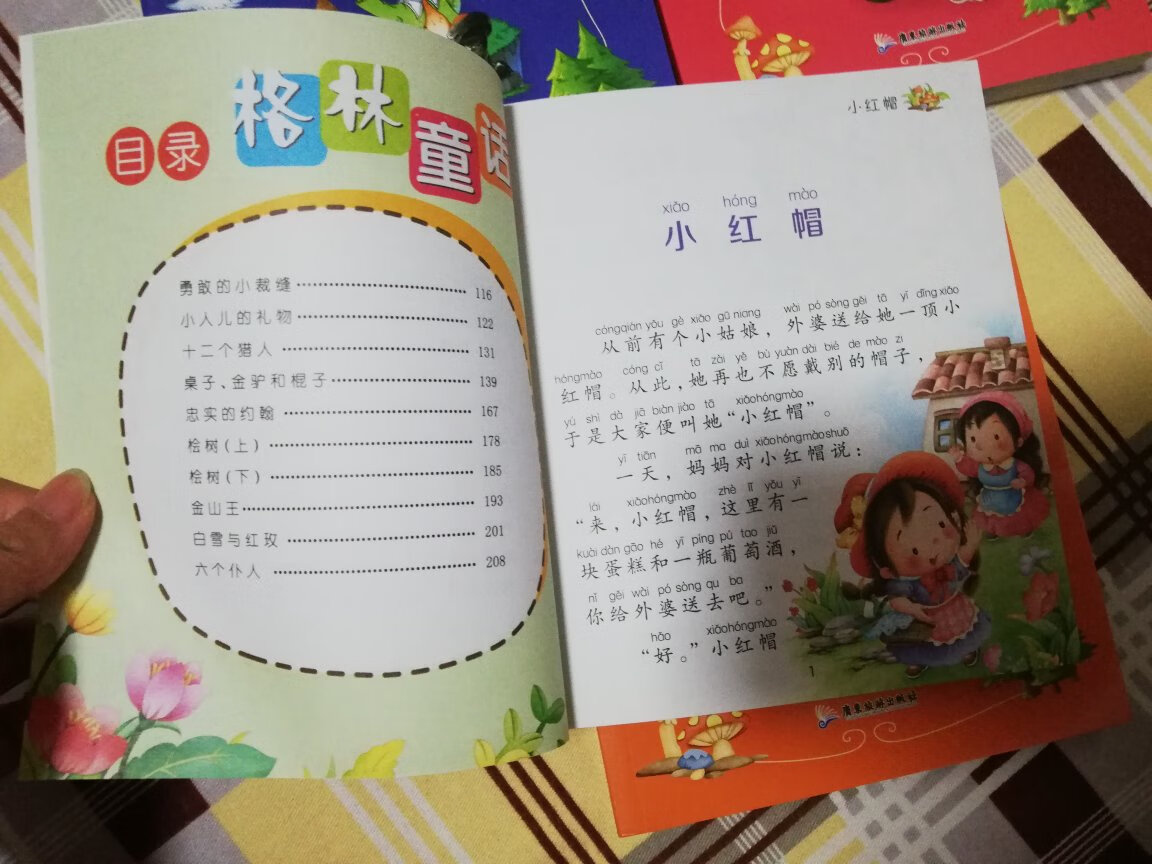 目录
格林童话
勇敢的小裁缝 116
小人儿的礼物 122
十二个猎人 131
桌子、金驴和棍子 139
忠实的约翰 167
桧树(上) 178
桧树(下) 185
金山王 193
白雪与红玫 201
六个仆人 208
小红帽
xiǎo hóng mào
小红帽
cóngqián yǒu gè xiǎo gū niang wài pó sòng gěi tā yì dǐng xiǎo
从前有个小姑娘，外婆送给她一顶小
hóngmào cóng cǐ tā zài yě bú yuàn dài bié de mào zi
红帽。从此，她再也不愿戴别的帽子，
yú shì dà jiā biàn jiào tā xiǎohóngmào
于是大家便叫她“小红帽”。
yì tiān mā ma duì xiǎohóngmàoshuō
一天，妈妈对小红帽说：
lái xiǎohóngmào zhè lǐ yǒu yí
“来，小红帽，这里有一
kuài dàn gāo hé yì píng pú tao jiǔ
块蛋糕和一瓶葡萄酒，
nǐ gěi wài pó sòng qu ba
你给外婆送去吧。”
hǎo xiǎohóngmào
“好。”小红帽
1
廣東旅游出版社
廣東旅游出版社